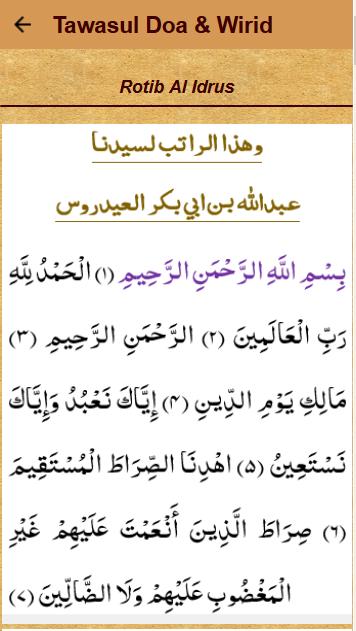 Tawasul Doa & Wirid
Rotib Al Idrus
وهذا الراتب لسيدنا
عبدالله بن ابي بكر العيدروس
بِسْمِ اللَّهِ الرَّحْمَنِ الرَّحِيمِ (١) الْحَمْدُ لِلَّهِ
رَبِّ الْعَالَمِينَ (٢) الرَّحْمَنِ الرَّحِيمِ (٣)
مَالِكِ يَوْمِ الدِّينِ (۴) إِيَّاكَ نَعْبُدُ وَإِيَّاكَ
نَسْتَعِينُ (۵) اهْدِنَا الصِّرَاطَ الْمُسْتَقِيمَ
(٦) صِرَاطَ الَّذِينَ أَنْعَمْتَ عَلَيْهِمْ غَيْرِ
الْمَغْضُوبِ عَلَيْهِمْ وَلَا الضَّالِّينَ (٧)